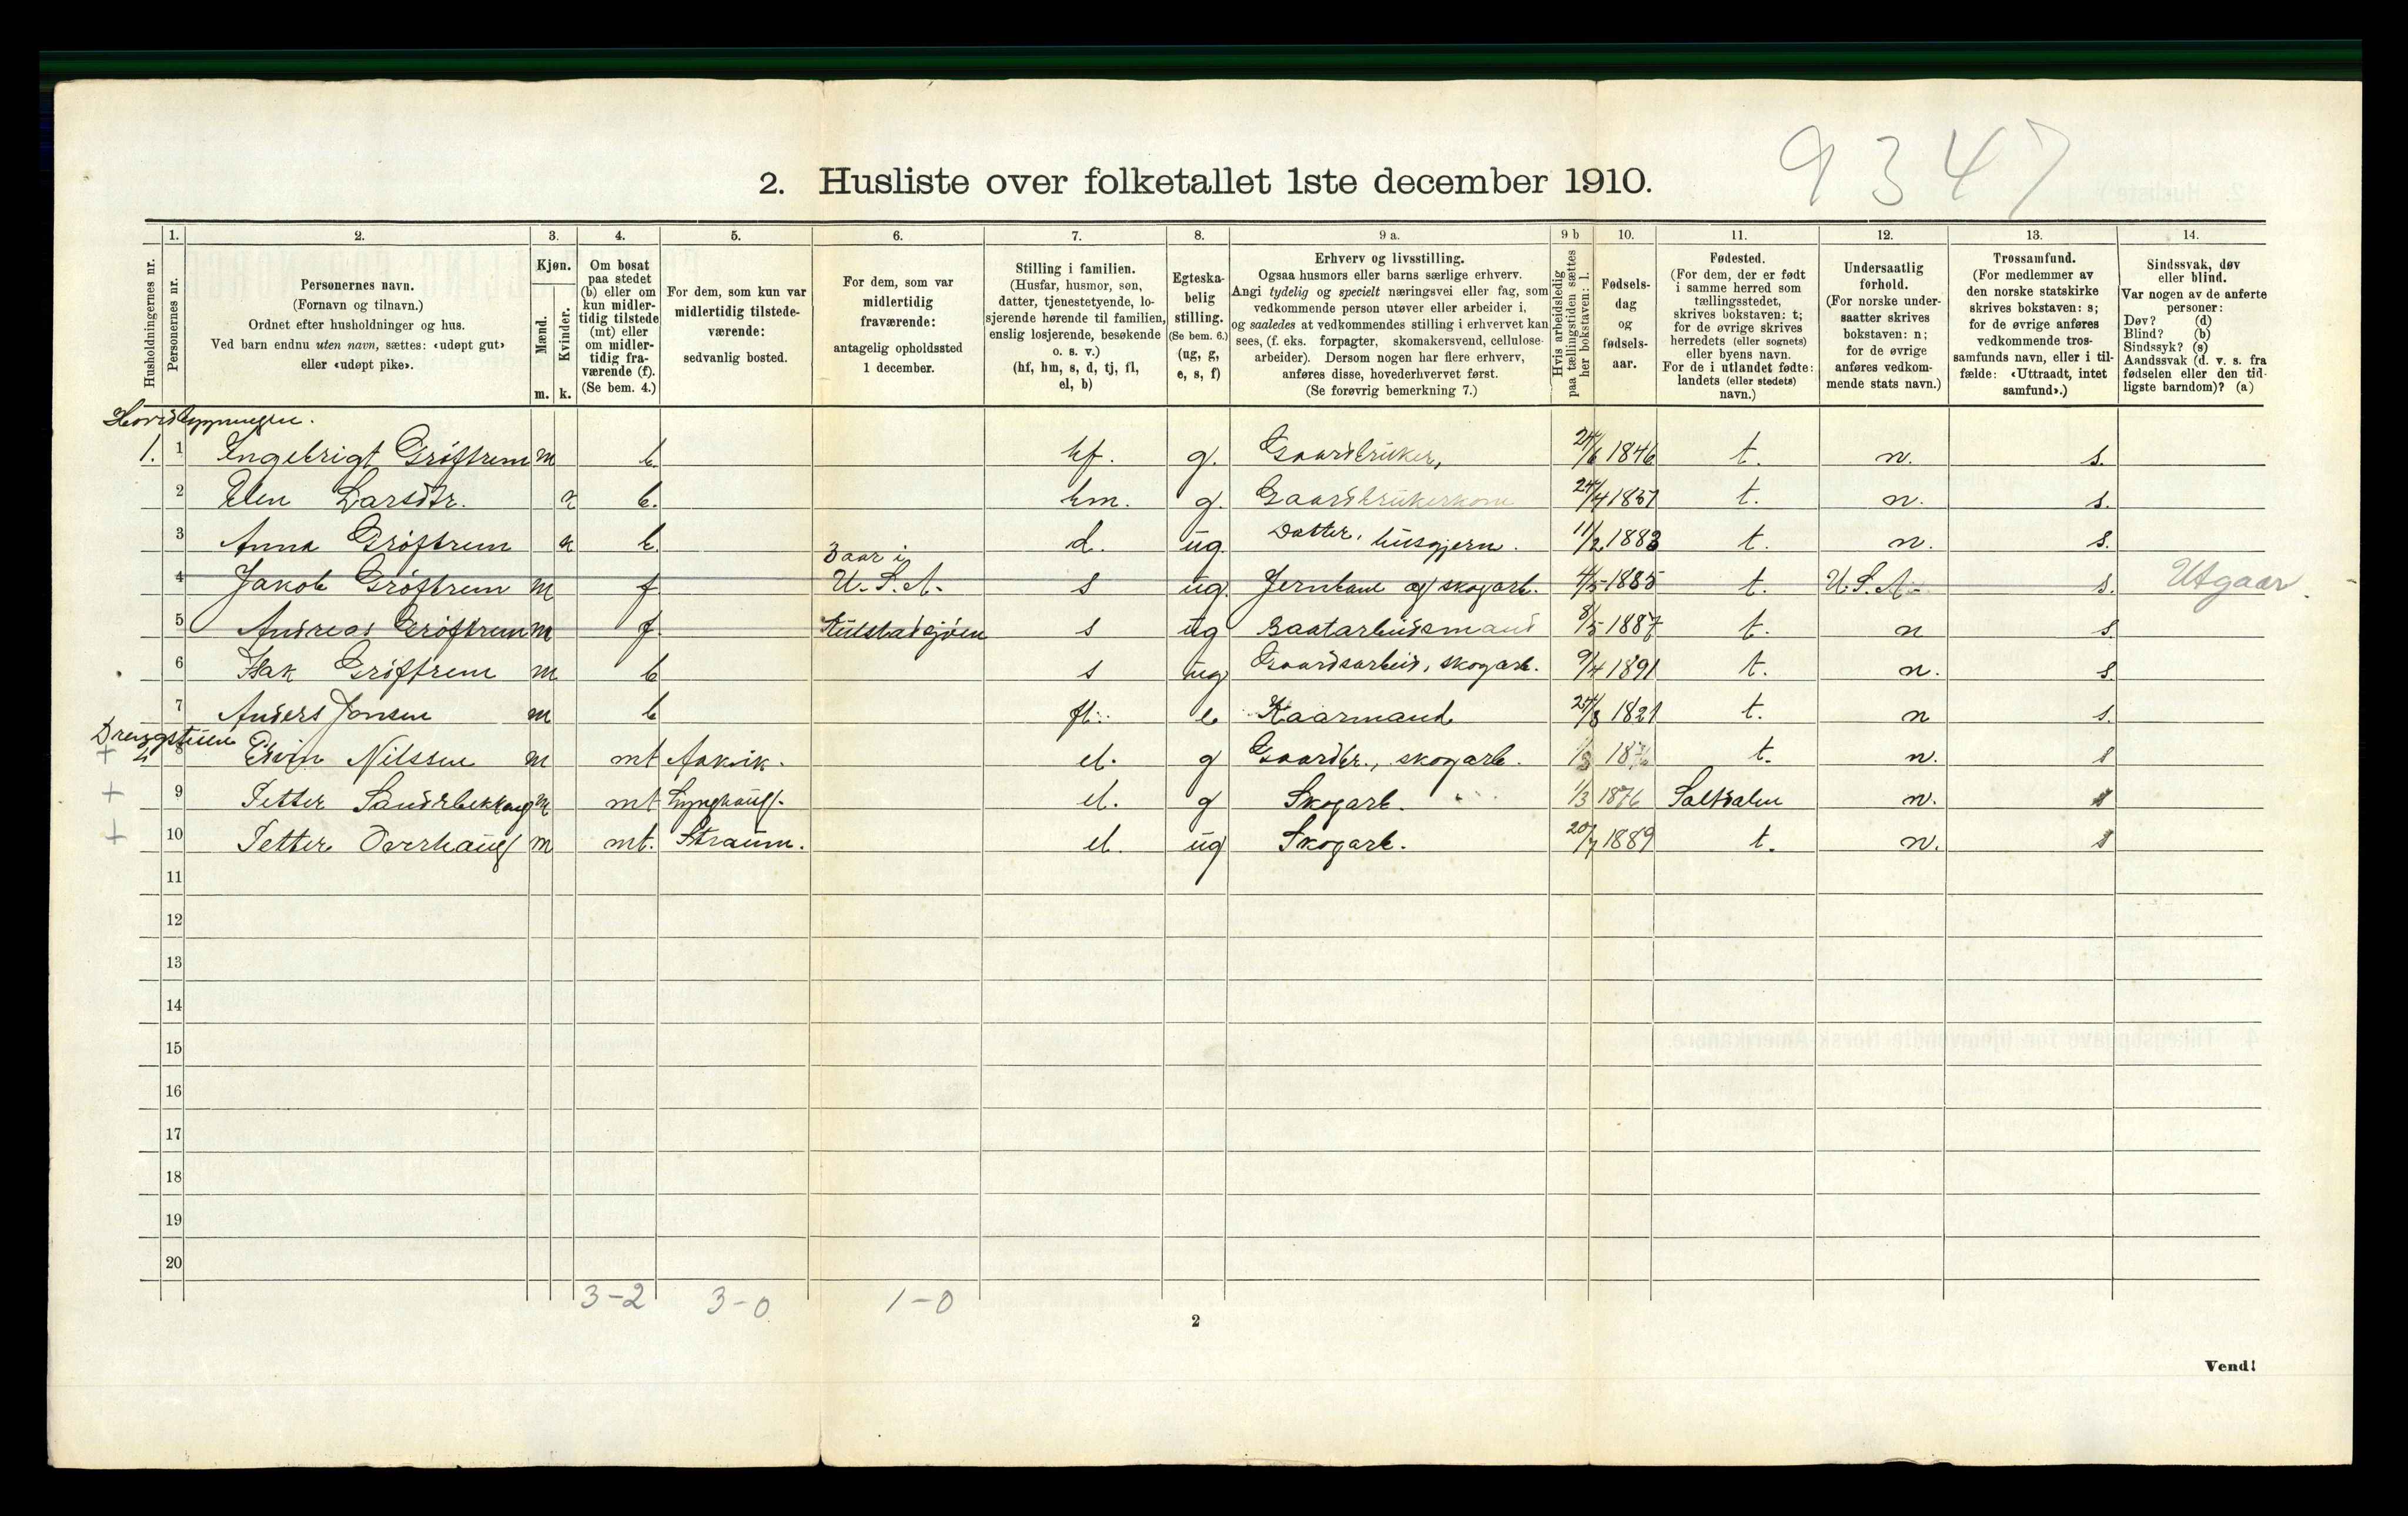 9347
2. Husliste over folketallet 1ste december 1910.
Husholdningernes nr.
1.
Personernes nr.
2.
Personernes navn.
(Fornavn og tilnavn.)
Ordnet efter husholdninger og hus.
Ved barn endnu uten navn, sættes: «udøpt gut»
eller «udøpt pike».
3.
Kjøn.
Mænd.
Kvinder.
m. k.
4.
Om bosat
paa stedet
(b) eller om
kun midler-
tidig tilstede
(mt) eller
om midler-
tidig fra-
værende (f).
(Se bem. 4.)
5.
For dem, som kun var
midlertidig tilstede-
værende:
sedvanlig bosted.
6.
For dem, som var
midlertidig
fraværende:
antagelig opholdssted
1 december.
7.
Stilling i familien.
(Husfar, husmor, søn,
datter, tjenestetyende, lo-
sjerende hørende til familien,
enslig losjerende, besøkende
o. s. v.)
(hf, hm, s, d, tj, fl,
el, b)
8.
Egteska-
belig
stilling.
(Se bem. 6.)
(ug, g,
e, s, f)
9 a.
Erhverv og livsstilling.
Ogsaa husmors eller barns særlige erhverv.
Angi tydelig og specielt næringsvei eller fag, som
vedkommende person utøver eller arbeider i,
og saaledes at vedkommendes stilling i erhvervet kan
sees, (f. eks. forpagter, skomakersvend, cellulose-
arbeider). Dersom nogen har flere erhverv,
anføres disse, hovederhvervet først.
(Se forøvrig bemerkning 7.)
9 b
Hvis arbeidsledig
paa tællingstiden sættes
her bokstaven: l.
10.
Fødsels-
dag
og
fødsels-
aar.
11.
Fødested.
(For dem, der er født
i samme herred som
tællingsstedet,
skrives bokstaven: t;
for de øvrige skrives
herredets (eller sognets)
eller byens navn.
For de i utlandet fødte:
landets (eller stedets)
navn.)
12.
Undersaatlig
forhold.
(For norske under-
saatter skrives
bokstaven: n;
for de øvrige
anføres vedkom-
mende stats navn.)
13.
Trossamfund.
(For medlemmer av
den norske statskirke
skrives bokstaven: s;
for de øvrige anføres
vedkommende tros-
samfunds navn, eller i til-
fælde: «Uttraadt, intet
samfund».)
14.
Sindssvak, døv
eller blind.
Var nogen av de anførte
personer:
Døv? (d)
Blind? (b)
Sindssyk? (s)
Aandssvak (d. v. s. fra
fødselen eller den tid-
ligste barndom)? (a)
Hovedbygningen.
1. 1 Ingebrigt Grøftrem m b hf. g. Gaardbruker, 24/6 1846 t. n. s.
2 Elen Larsdtr. k b. hm. g. Gaardbrukerkone 24/4 1857 t. n. s.
3 Anna Grøftrem k b. d. ug. Datter, husgjern. 11/2 1883 t. n. s.
4 Jakob Grøftrem m f 3 aar i U.S.A. s ug. Jernbane og skogarb. 4/5 1885 t. U.S.A. s. Utgaar.
5 Andreas Grøftrem m f s ug 8/5 1887 t. n s.
6 Isak Grøftrem m b s ug Gaardsarbeid, skogarb. 9/4 1891 t. n. s.
7 Anders Jonsen m b fl. e Kaarmand 24/3 1821 t. n s.
Drengstuen
+ 8 Edvin Nilssen m mt Aakvik. el. g Gaardbr., skogarb. t. n. s
+ 9 Petter m mt Lynghaug. el. g Skogarb. 1/3 1876 Saltdalen n. s
+ 10 Petter Overhaug m mt. Straum. el. ug Skogarb. 20/7 1889 t. n. s
11
12
13
14
15
16
17
18
19
20
3-2 3-0 1-0
2
Vend!